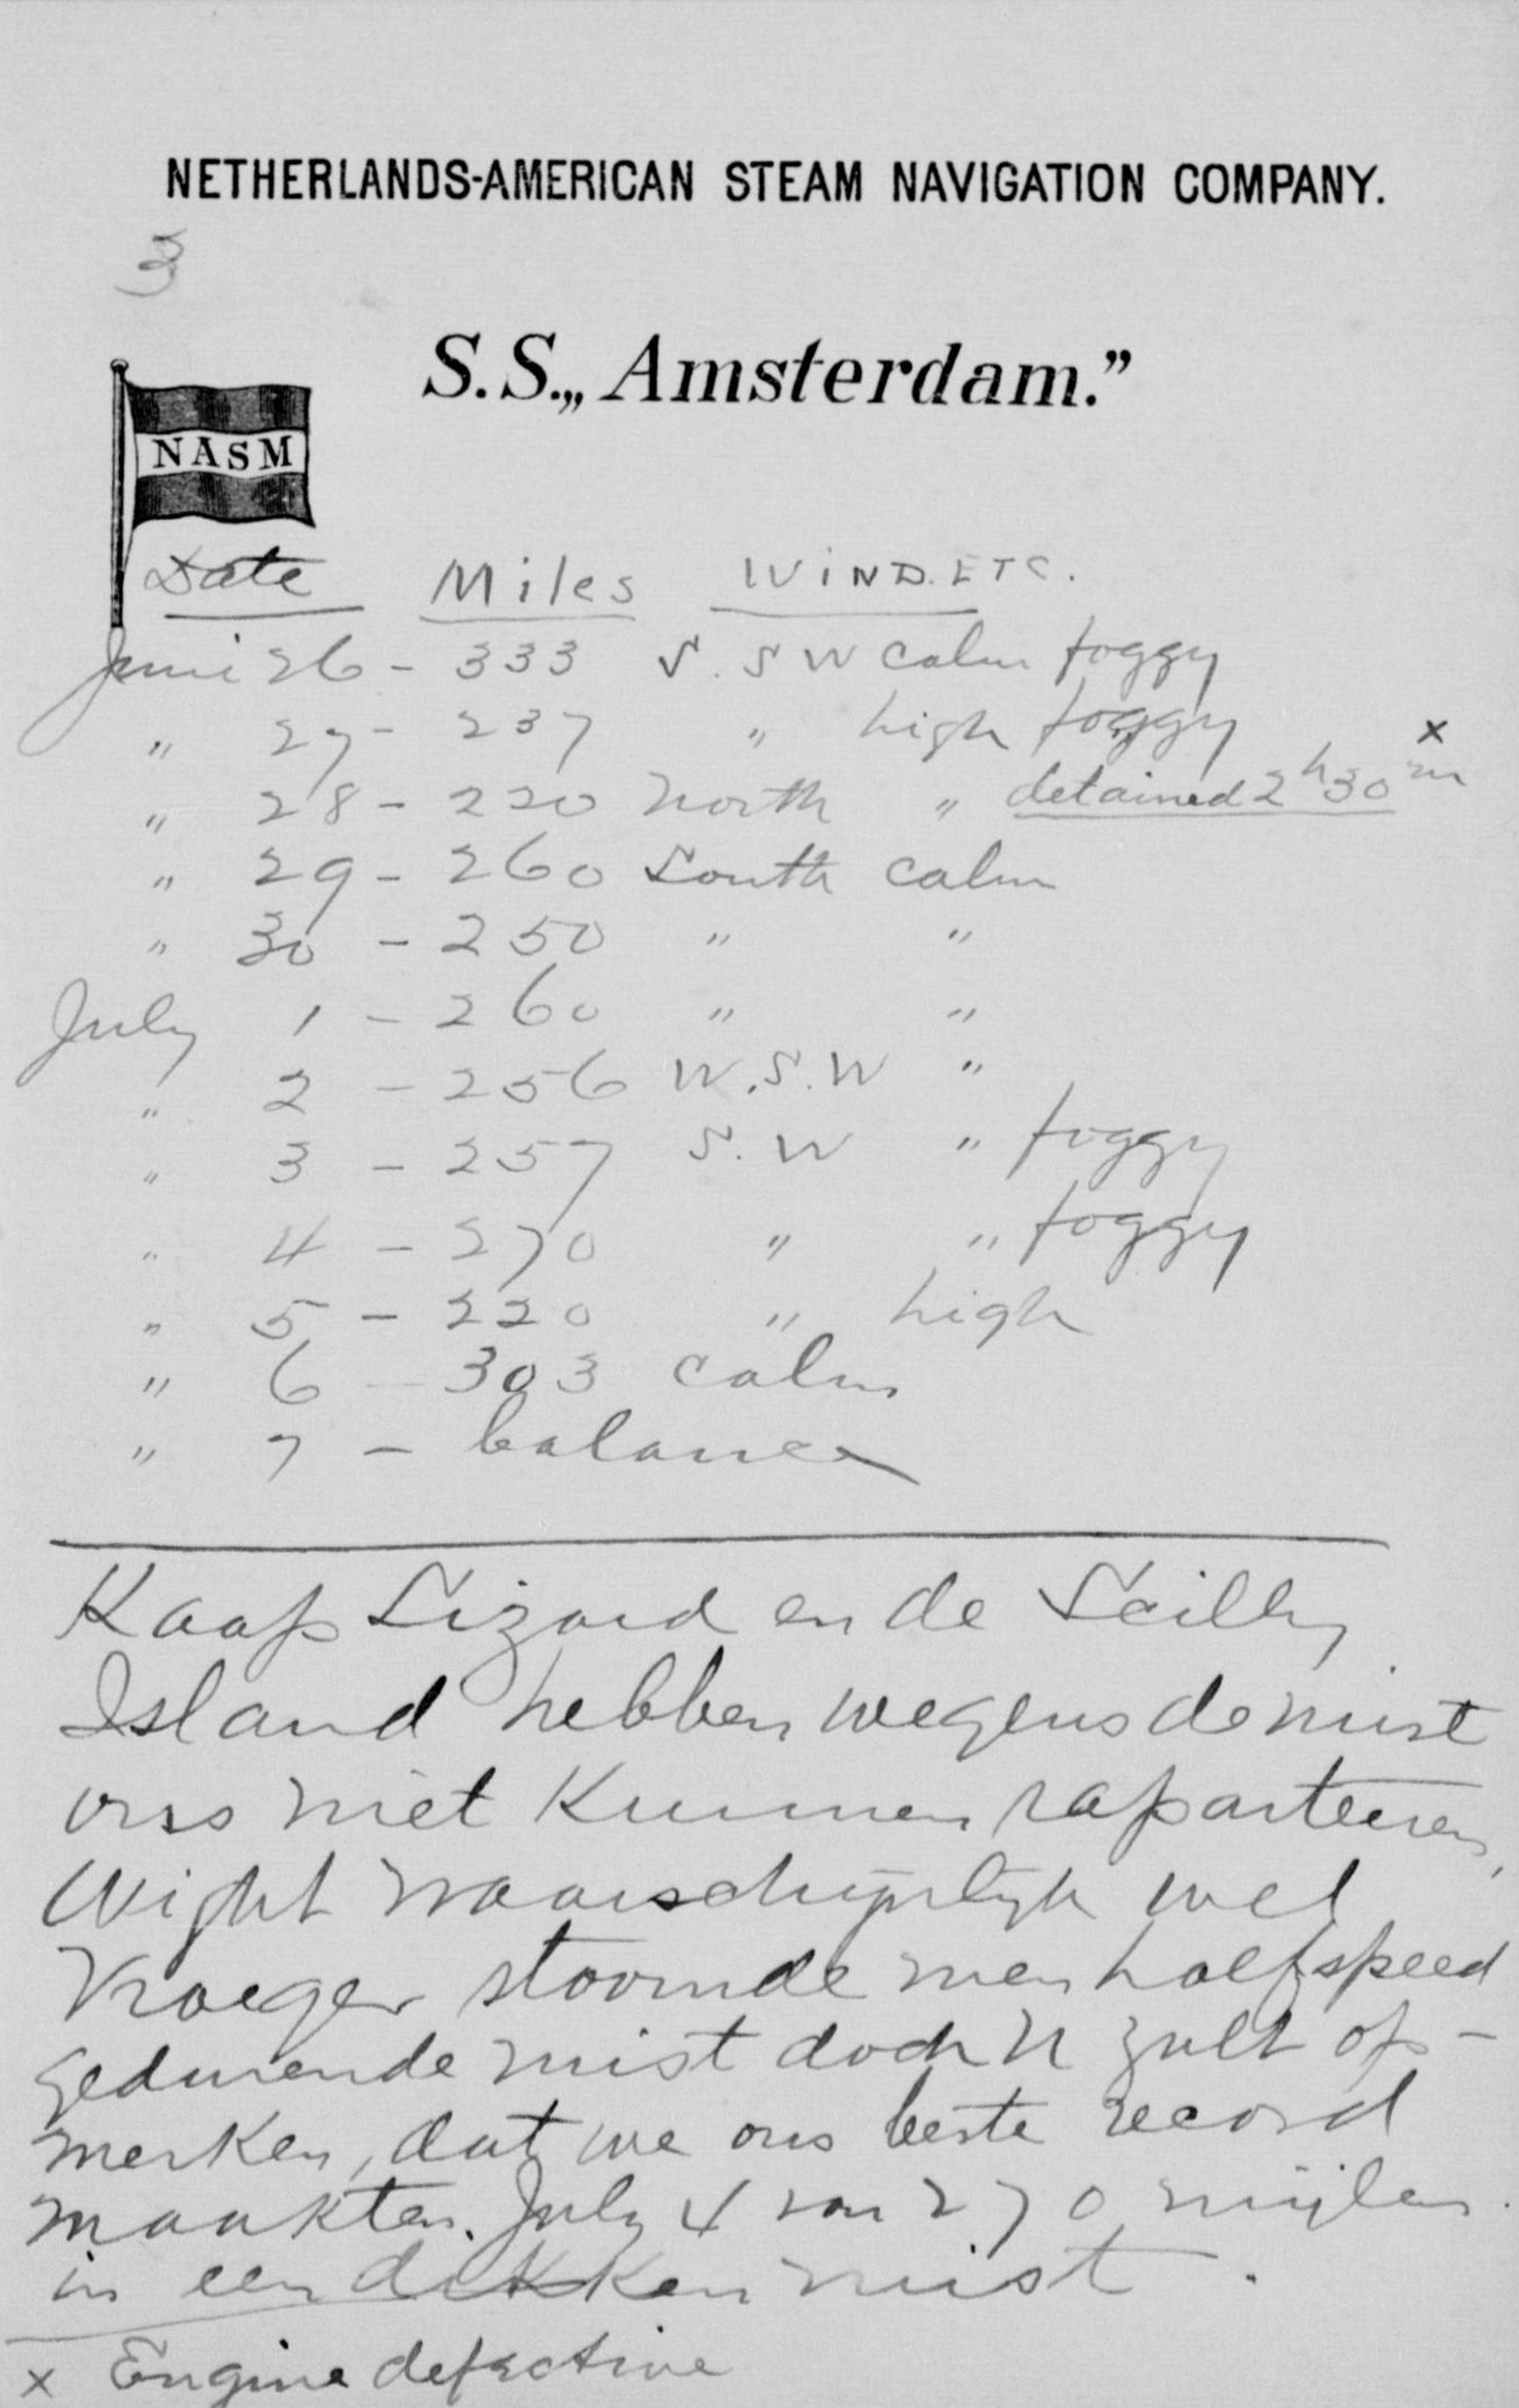 NETHERLANDS-AMERICAN STEAM NAVIGATION COMPANY.
3
S.S. „Amsterdam.”
NASM
Date Miles WIND. ETC.
Juni 26 - 333 S. S W calm foggy
" 27 - 237 " high foggy
" 28 - 220 North " detained 2 h 30 m x
" 29 - 260 South calm
" 30 - 250 " "
July 1 - 260 " "
" 2 - 256 W.S.W "
" 3 - 257 S.W " foggy
" 4 - 270 " " foggy
" 5 - 220 " high
" 6 - 303 calm
" 7 - balance
Kaap Lizard en de Scilly
Island hebben wegens de mist
ons niet kunnen raparteeren,
Wight waarschijnlijk wel
Vroeger stoomde men halfspeed
gedurende mist doch U zult op-
merken, dat we ons beste record
maakten. July 4 van 270 mijlen
in een dikken mist.
x Engine defective